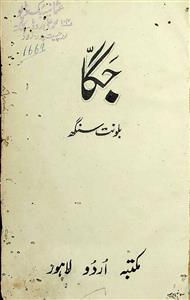 1661
جگّا
بلونت سنگھ
مکتبہ اُردو لاہور